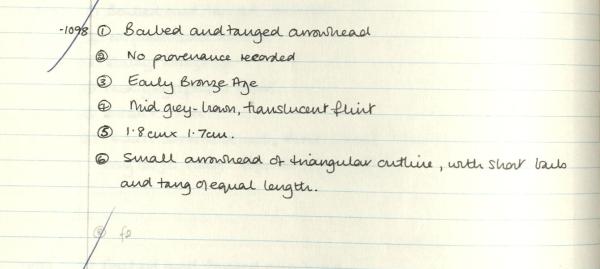 -1098 ① Barbed and tanged arrowhead
② No provenance recorded
③ Early Bronze Age
④ Mid grey-brown, translucent flint
⑤ 1.8cm x 1.7cm.
⑥ Small arrowhead of triangular outline, with short barbs
and tang of equal length.